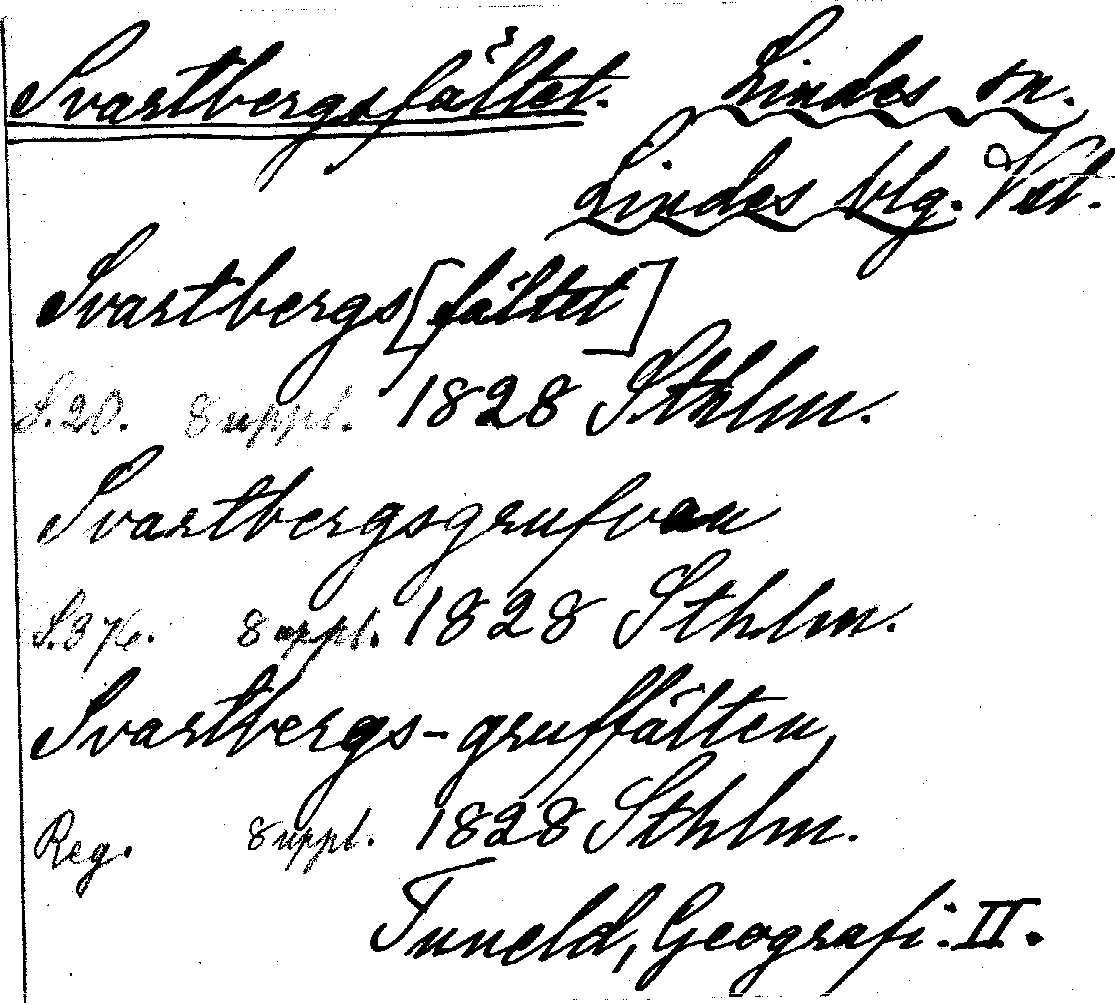 Svartbergsfältet. Lindes sn.
Lindes blg. Vstl.
Svartbergs[fältet]
S.20. 8 uppl. 1828 Sthlm.
Svartbergsgrufvan
S.376. 8 uppl. 1828 Sthlm.
Svartbergs-gruffälten,
Reg. 8 uppl. 1828 Sthlm.
Tuneld, Geografi. II.